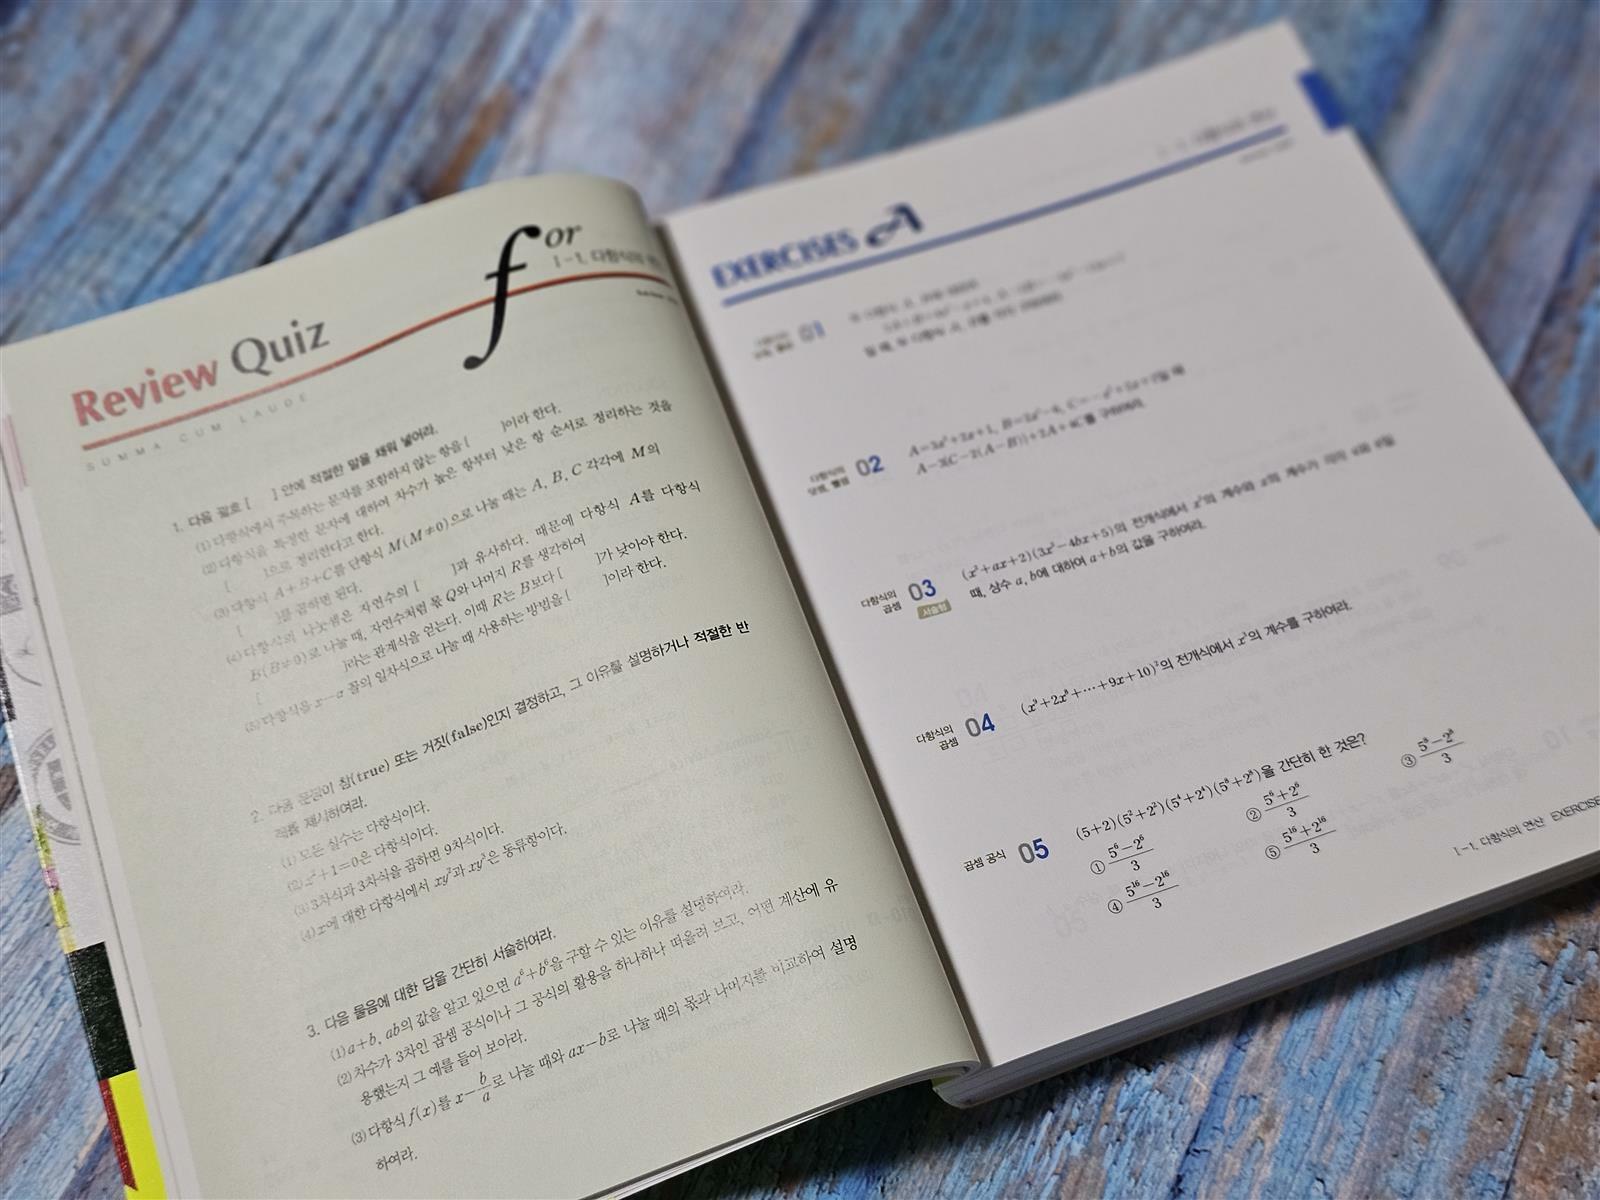 for
Ⅰ-1. 다항식의
Review Quiz
SUMMA CUM LAUDE
1. 다음 괄호 [ ] 안에 적절한 말을 채워 넣어라.
(1) 다항식에서 주목하는 문자를 포함하지 않는 항을 [ ]이라 한다.
(2) 다항식을 특정한 문자에 대하여 차수가 높은 항부터 낮은 항 순서로 정리하는 것을
[ ]으로 정리한다고 한다.
(3) 다항식 A+B+C를 단항식 M(M≠0)으로 나눌 때는 A, B, C 각각에 M의
[ ]를 곱하면 된다.
(4) 다항식의 나눗셈은 자연수의 [ ]과 유사하다. 때문에 다항식 A를 다항식
B(B≠0)로 나눌 때, 자연수처럼 몫 Q와 나머지 R를 생각하여
[ ]라는 관계식을 얻는다. 이때 R는 B보다 [ ]가 낮아야 한다.
(5) 다항식을 x-a 꼴의 일차식으로 나눌 때 사용하는 방법을 [ ]이라 한다.
2. 다음 문장이 참(true) 또는 거짓(false)인지 결정하고, 그 이유를 설명하거나 적절한 반
적를 제시하여라.
(1) 모든 실수는 다항식이다.
(2) x²+1=0은 다항식이다.
(3) 3차식과 3차식을 곱하면 9차식이다.
(4) x에 대한 다항식에서 xy²과 xy³은 동류항이다.
3. 다음 물음에 대한 답을 간단히 서술하여라.
(1) a+b, ab의 값을 알고 있으면 a⁶+b⁶을 구할 수 있는 이유를 설명하여라.
(2) 차수가 3차인 곱셈 공식이나 그 공식의 활용을 하나하나 떠올려 보고, 어떤 계산에 유
용했는지 그 예를 들어 보아라.
(3) 다항식 f(x)를 x-b/a로 나눌 때와 ax-b로 나눌 때의 몫과 나머지를 비교하여 설명
하여라.
EXERCISES A
01
일 때, 두 다항식 A, B를
다항식의
덧셈, 뺄셈
02
A=3x²+2x+1, B=2x²-6, C=-x²+5x+2일 때
A-3{C-2(A-B)}+2A+4C를 구하여라.
다항식의
곱셈
03
서술형
(x²+ax+2)(3x²-4bx+5)의 전개식에서 x³의 계수와 x의 계수가 각각 6와 8일
때, 상수 a, b에 대하여 a+b의 값을 구하여라.
다항식의
곱셈
04
(x⁹+2x⁸+⋯+9x+10)²의 전개식에서 x³의 계수를 구하여라.
곱셈 공식
05
(5+2)(5²+2²)(5⁴+2⁴)(5⁸+2⁸)을 간단히 한 것은?
① (5⁶-2⁶)/3 ② (5⁶+2⁶)/3 ③ (5⁸-2⁸)/3
④ (5¹⁶-2¹⁶)/3 ⑤ (5¹⁶+2¹⁶)/3
Ⅰ-1. 다항식의 연산 EXERCISE